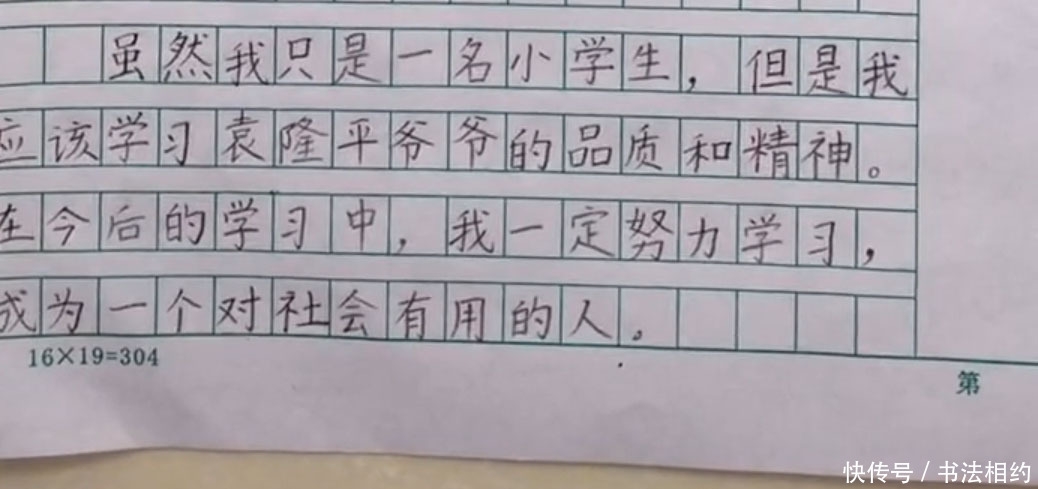 虽然我只是一名小学生，但是我
应该学习袁隆平爷爷的品质和精神。
在今后的学习中，我一定努力学习，
成为一个对社会有用的人。
16×19=304
第
快传号/书法相约